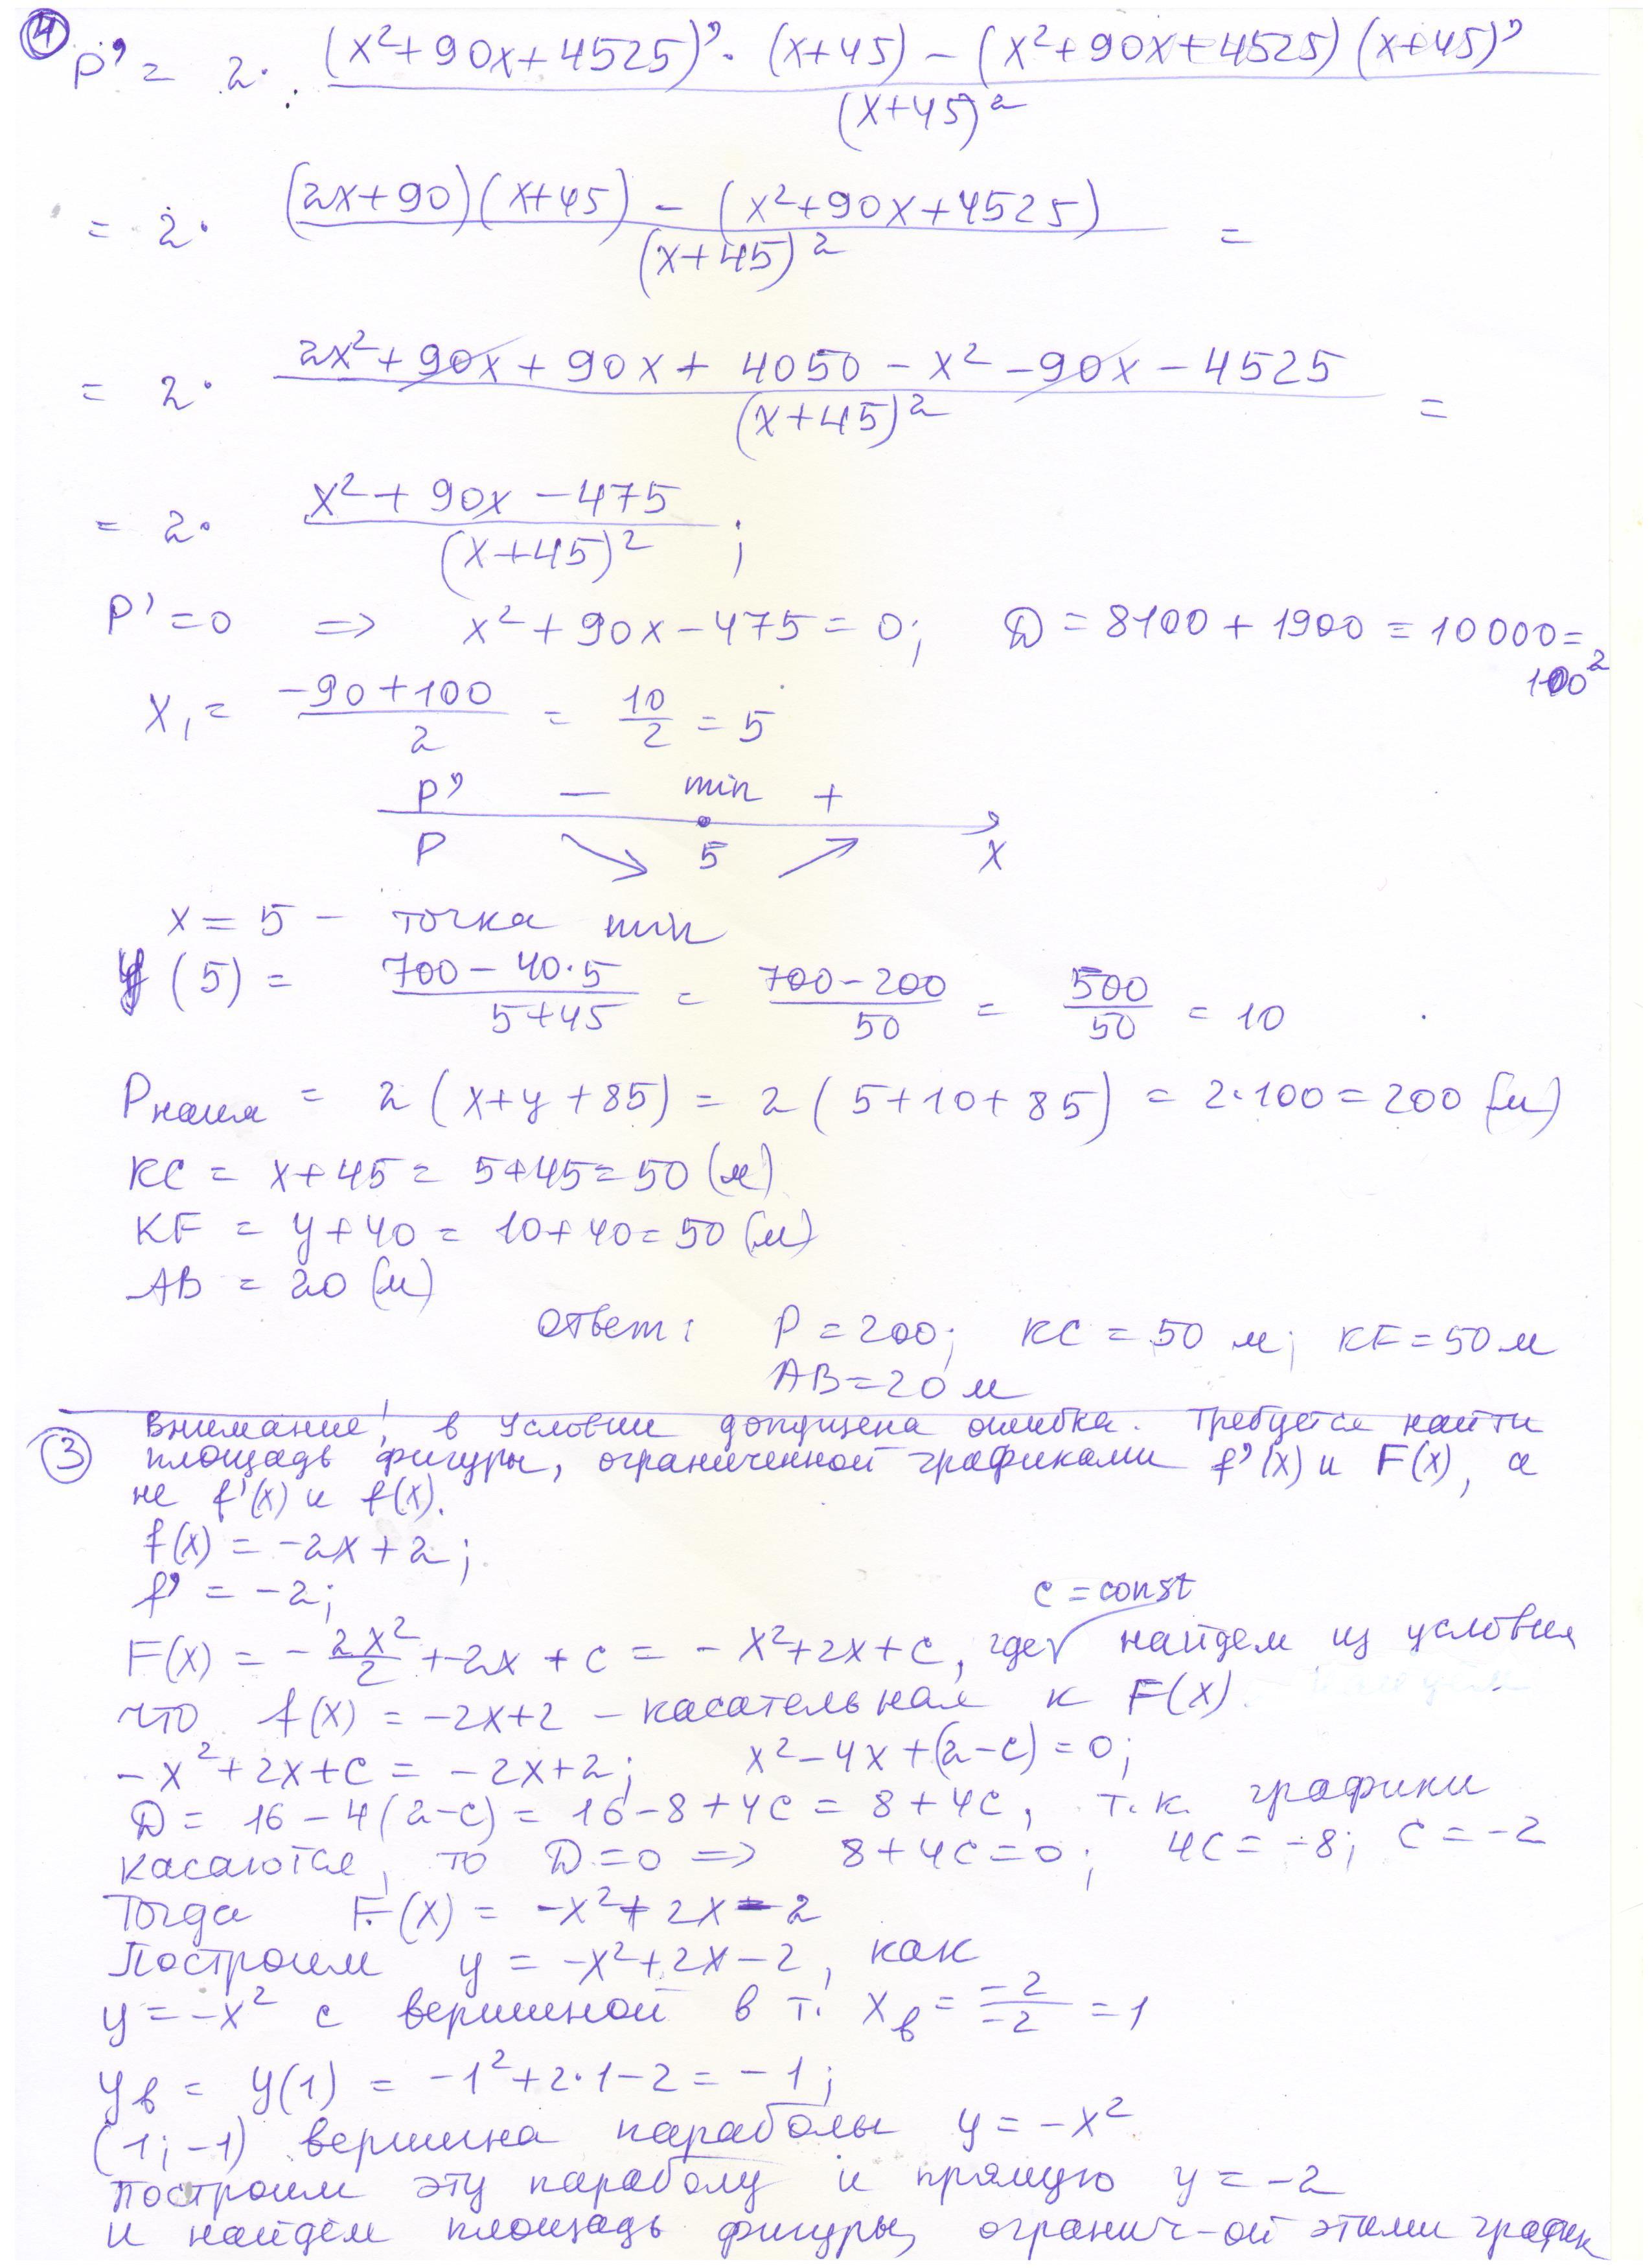 ④ P' = 2 · ((x²+90x+4525)' · (x+45) – (x²+90x+4525)(x+45)') / (x+45)²
= 2 · ((2x+90)(x+45) – (x²+90x+4525)) / (x+45)² =
= 2 · (2x²+90x+90x+4050–x²–90x–4525) / (x+45)² =
= 2 · (x²+90x–475) / (x+45)² ;
P'=0 => x²+90x–475=0; D = 8100+1900 = 10000 =
100²
x₁ = (–90+100)/2 = 10/2 = 5
P' – min +
P 5 x
x = 5 – точка min
y(5) = (700–40·5)/(5+45) = (700–200)/50 = 500/50 = 10
Pнаим = 2(x+y+85) = 2(5+10+85) = 2·100=200 (м)
KC = x+45 = 5+45=50 (м)
KF = y+40 = 10+40=50 (м)
AB = 20 (м)
Ответ: P=200; KC=50 м; KF=50м
AB=20 м
③ Внимание! в условии допущена ошибка. Требуется найти
площадь фигуры, ограниченной графиками f'(x) и F(x), а
не f'(x) и f(x).
f(x) = –2x+2;
f' = –2;
c = const
F(x) = –2x²/2 + 2x + c = –x²+2x+c, где найдем из условия
что f(x) = –2x+2 – касательная к F(x).
–x²+2x+c = –2x+2; x²–4x+(2–c)=0;
D = 16–4(2–c) = 16–8+4c = 8+4c, т.к. графики
касаются, то D=0 => 8+4c=0; 4c=–8; c=–2
Тогда F(x) = –x²+2x–2
Построим y = –x²+2x–2, как
y=–x² с вершиной в т. xв = –2/–2 = 1
yв = y(1) = –1²+2·1–2 = –1;
(1;–1) вершина параболы y = –x²
Построим эту параболу и прямую y = –2
и найдём площадь фигуры, огранич-ой этими график